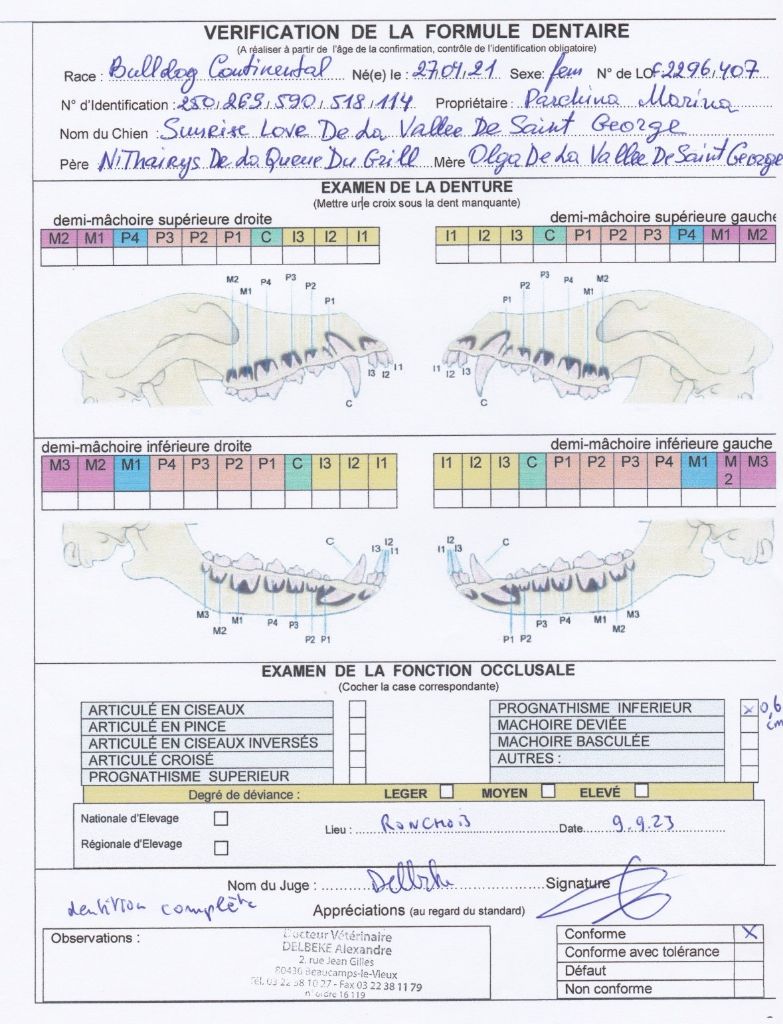 VERIFICATION DE LA FORMULE DENTAIRE
(A réaliser à partir de l'âge de la confirmation, contrôle de l'identification obligatoire)
Race : Bulldog Continental Né(e) le : 27.04.21 Sexe: fem N° de LOF 2296,407
N° d'Identification : 250,269,590,518,114 Propriétaire : Parchina Marina
Nom du Chien : Sunrise Love De La Vallee De Saint George
Père NiThairys De La Queue Du Grill Mère Olga De La Vallee De Saint George
EXAMEN DE LA DENTURE
(Mettre une croix sous la dent manquante)
demi-mâchoire supérieure droite demi-mâchoire supérieure gauche
M2 M1 P4 P3 P2 P1 C I3 I2 I1 I1 I2 I3 C P1 P2 P3 P4 M1 M2
M2 M1 P4 P3 P2 P1 I3 I2 I1 C
I1 I2 I3 C P1 P2 P3 P4 M1 M2
demi-mâchoire inférieure droite demi-mâchoire inférieure gauche
M3 M2 M1 P4 P3 P2 P1 C I3 I2 I1 I1 I2 I3 C P1 P2 P3 P4 M1 M2 M3
C I3 I2 I1 M3 M2 M1 P4 P3 P2 P1
I2 I3 I1 C P1 P2 P3 P4 M1 M2 M3
EXAMEN DE LA FONCTION OCCLUSALE
(Cocher la case correspondante)
ARTICULÉ EN CISEAUX PROGNATHISME INFERIEUR x 0,6 cm
ARTICULÉ EN PINCE MACHOIRE DEVIÉE
ARTICULÉ EN CISEAUX INVERSÉS MACHOIRE BASCULÉE
ARTICULÉ CROISÉ AUTRES :
PROGNATHISME SUPERIEUR
Degré de déviance : LEGER MOYEN ELEVÉ
Nationale d'Elevage
Lieu : RONCHOIS Date 9.9.23
Régionale d'Elevage
Nom du Juge : Delbeke Signature
dentition complète Appréciations (au regard du standard)
Observations :
Docteur Vétérinaire
DELBEKE Alexandre
2, rue Jean Gilles
80430 Beaucamps-le-Vieux
Tél. 03 22 38 10 27 - Fax 03 22 38 11 79
n° ordre 16 119
Conforme X
Conforme avec tolérance
Défaut
Non conforme